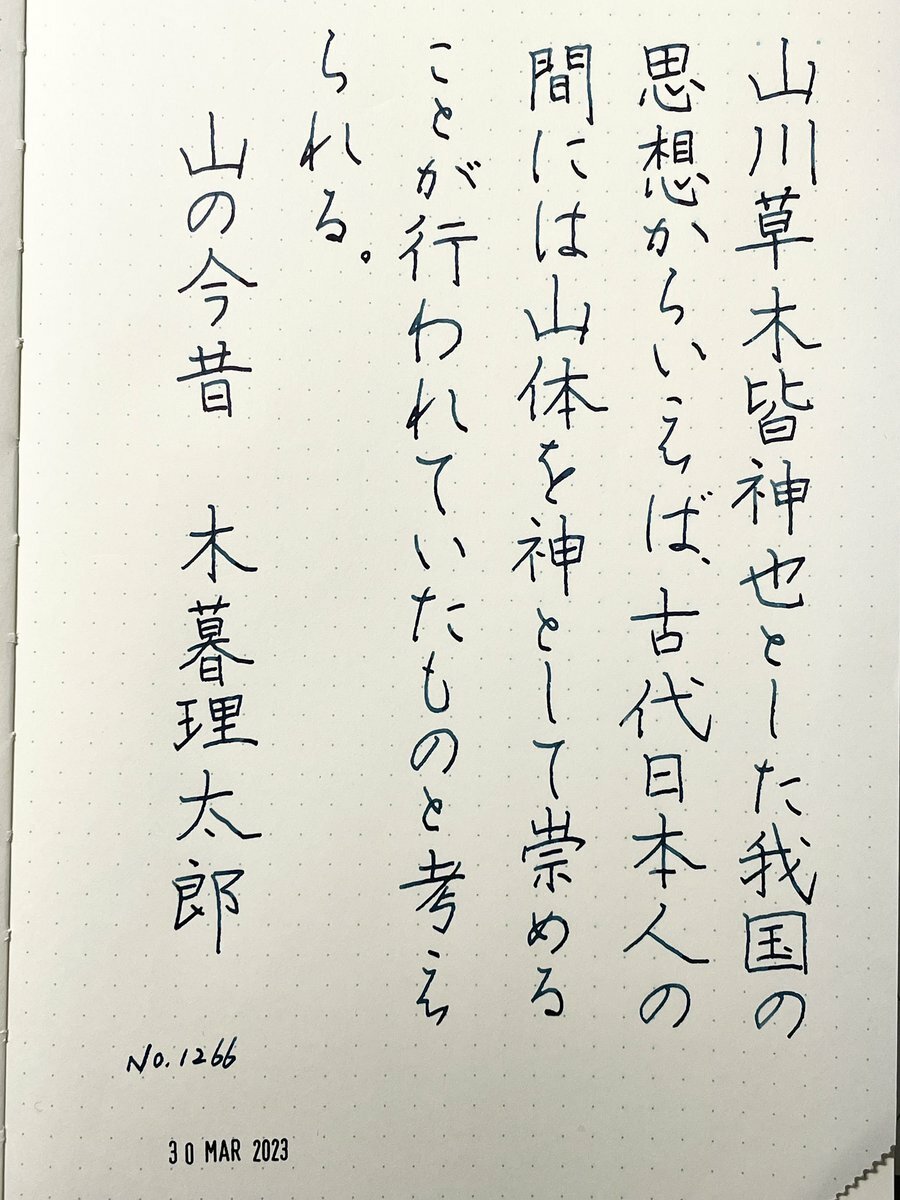 山川草木皆神也とした我国の
思想からいえば、古代日本人の
間には山体を神として崇める
ことが行われていたものと考え
られる。
山の今昔 木暮理太郎
No.1266
30 MAR 2023